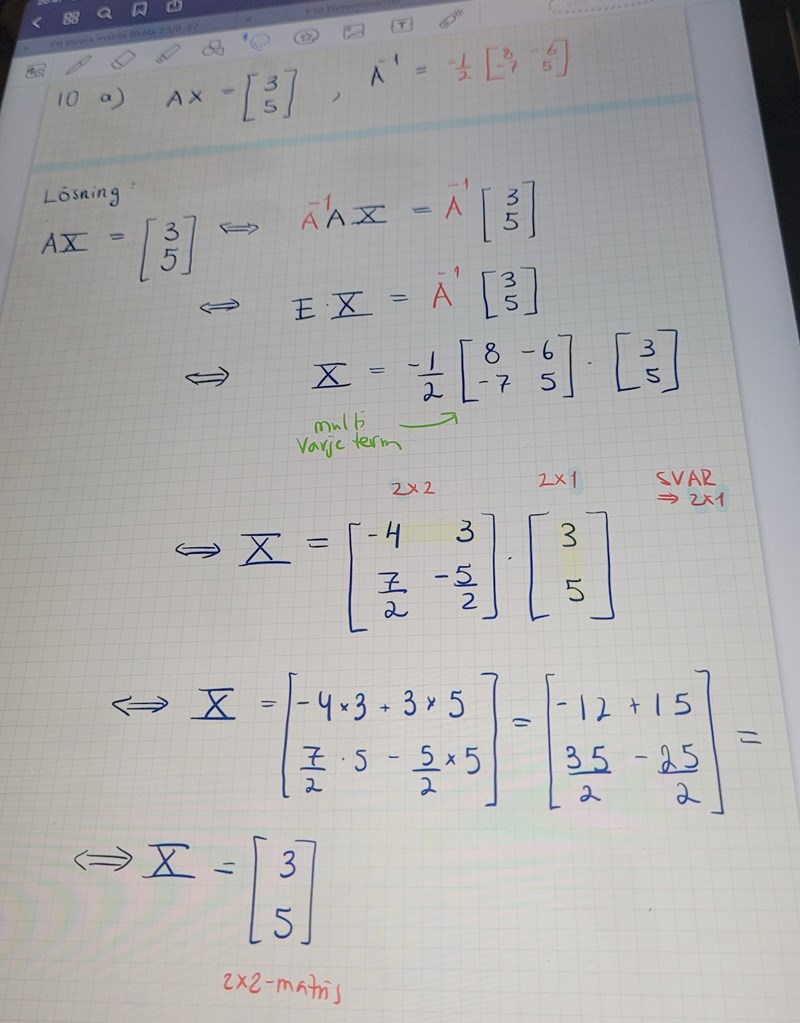 88
10 a) AX = [3 5] , A⁻¹ = -1/2 [8 -6 -7 5]
Lösning:
AX = [3 5] ⇔ A⁻¹AX = A⁻¹ [3 5]
⇔ E·X = A⁻¹ [3 5]
⇔ X = -1/2 [8 -6 -7 5] · [3 5]
multi
varje term
2×2 2×1 SVAR
⇒ 2×1
⇔ X = [-4 3 7/2 -5/2] · [3 5]
⇔ X = [-4×3 + 3×5 7/2 · 5 - 5/2 × 5] = [-12 + 15 35/2 - 25/2] =
⇔ X = [3 5]
2×2-matris